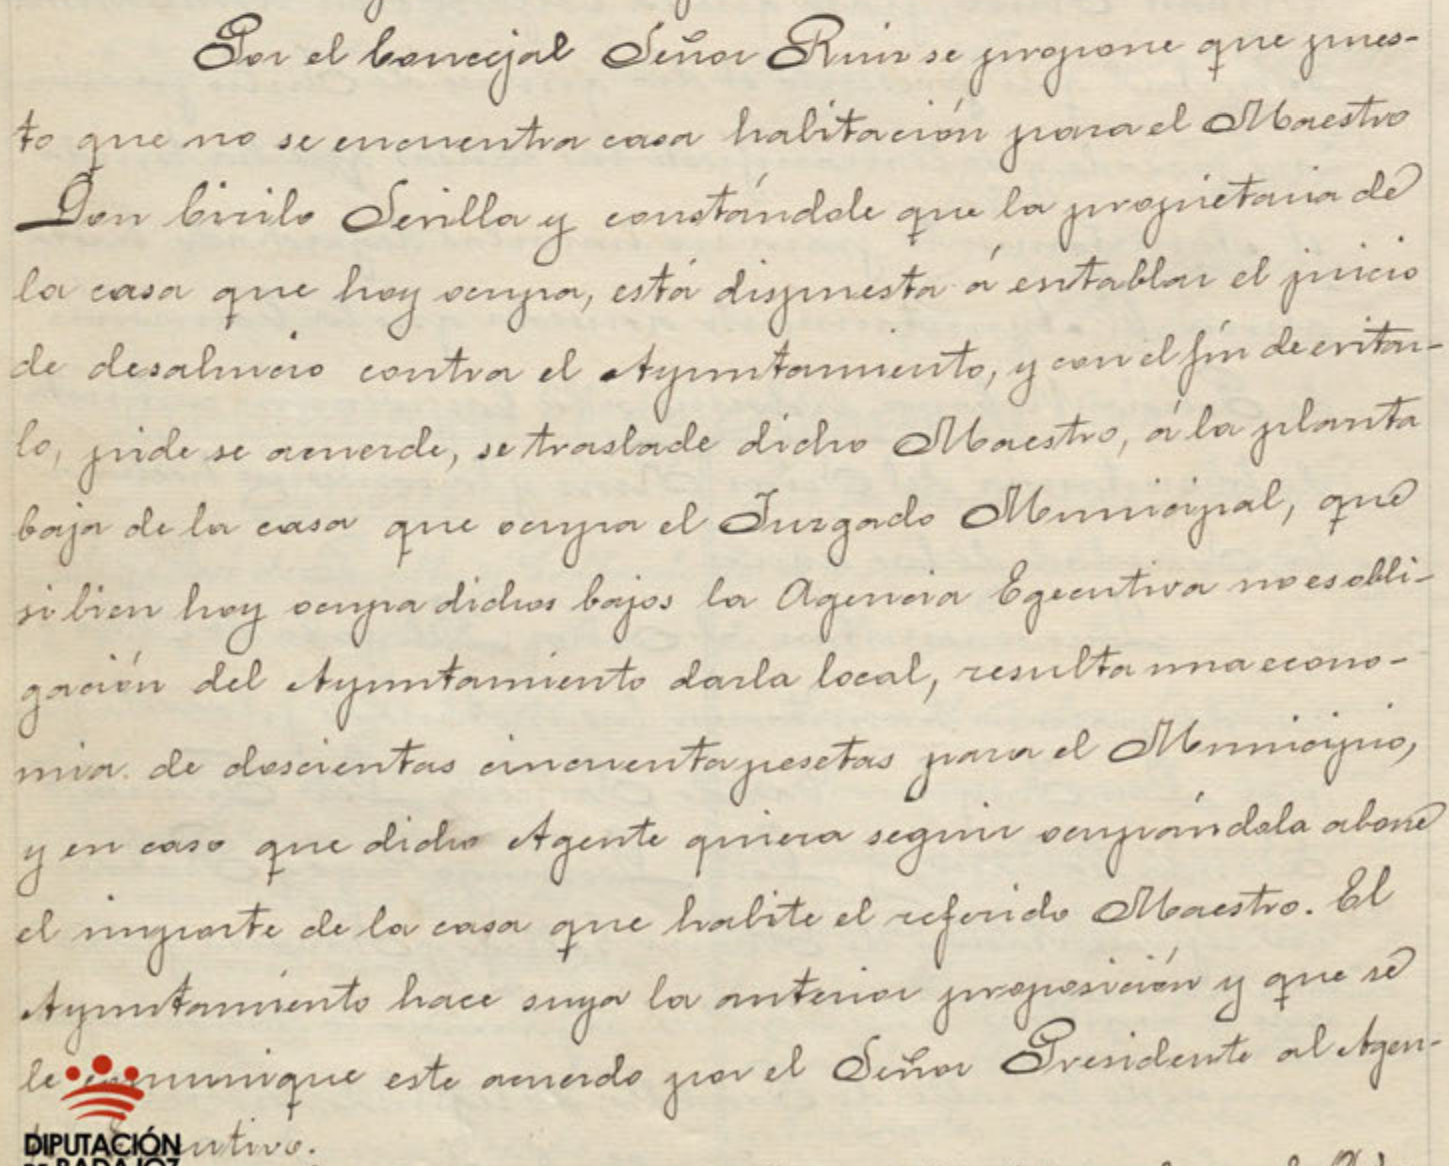 Por el Concejal Señor Ruiz se propone que pues-
to que no se encuentra casa habitación para el Maestro
Don Cirilo Sevilla y constándole que la propietaria de
la casa que hoy ocupa, está dispuesta á entablar el juicio
de desahucio contra el Ayuntamiento, y con el fin de evitar-
lo, pide se acuerde, se traslade dicho Maestro, á la planta
baja de la casa que ocupa el Juzgado Municipal, que
si bien hoy ocupa dichos bajos la Agencia Egecutiva no es obli-
gación del Ayuntamiento darla local, resulta una econo-
mia de doscientas cincuenta pesetas para el Municipio,
y en caso que dicho Agente quiera seguir ocupándola abone
el importe de la casa que habite el referido Maestro. El
Ayuntamiento hace suya la anterior proposición y que se
le comunique este acuerdo por el Señor Presidente al Agen-
DIPUTACIÓN
DE BADAJOZ